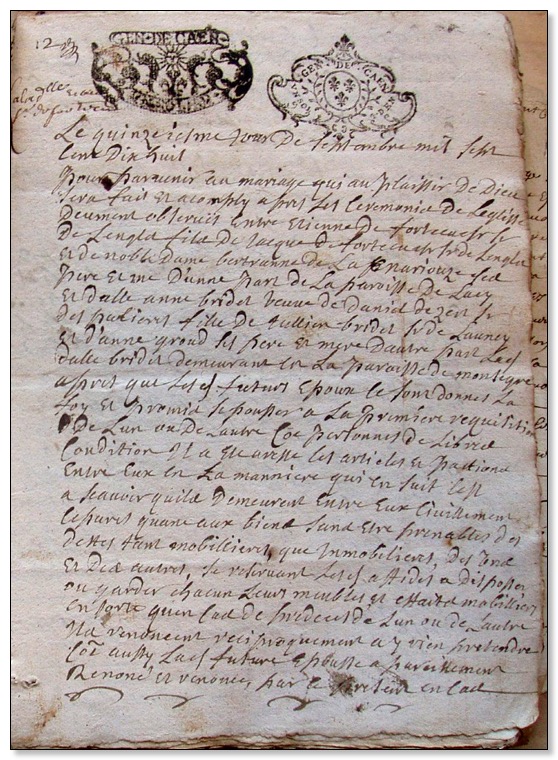 GEN·DE CAEN
GEN DE CAEN
12
Le quinziesme Jour De septembre mil sept
Cent Dix huit
Pour parvenir au mariage qui au plaissir De Dieu
sera fait et acomply apres Les Ceremonie De Leglise
Deument observéé Entre Etienne De fortecuesr sr
De Lengla fils De Jacque De fortecuesr sr de Lengla
et de noble Dame bertranne De La ses
Pere et me D'unne Part De La paroisse De Lacy
Et Dalle anne bridet veuve de Daniel De sr
Des fille de Jullien bridet sr De Launey
Et d'anne giroud ses pere et mere Dautre part Les
dalle bridet demeurant en La Paroisse de
apres que Les futurs Epoux se sont Donnes La
foy et Promis sepouser a La premiere requisition
De Lun ou De Lautre Coe personnes de Libred
Condition Il a Este areste les articles et Pactions
Entre Eux en La manniere qui en suit C'est
a scavoir quils Demeurent Entre Eux Civillement
separes quand aux biens sans Etre prenables des
dettes tant mobillieres, que Inmobilieres, des
Et Des autres, se reservant Les a Disposer
ou garder chacun Leurs meubles et effaits mobilliers
En sorte quen Cas de predeces De Lun ou de Lautre
Ils renoncent reciproquement a y rien pretendre
Coe aussy La future Epousse a pareillement
Renoncé et renonce, par Le en Cas